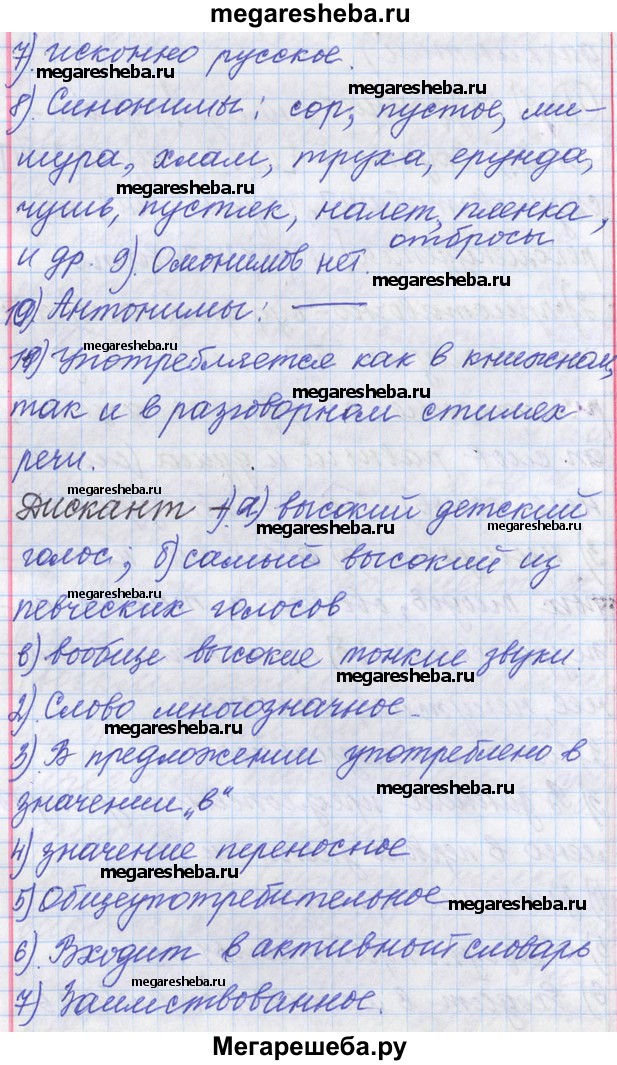 megaresheba.ru
7) исконно русское.
megaresheba.ru
8) Синонимы: сор, пустое, ми-
шура, хлам, труха, ерунда,
megaresheba.ru
чушь, пустяк, налет, пленка,
отбросы
и др. 9) Омонимов нет.
megaresheba.ru
10) Антонимы: —
megaresheba.ru
11) Употребляется как в книжном,
megaresheba.ru
так и в разговорном стилях
речи.
megaresheba.ru
Дискант – 1) а) высокий детский
megaresheba.ru
голос; б) самый высокий из
megaresheba.ru
певческих голосов
megaresheba.ru
в) вообще высокие тонкие звуки.
2) Слово многозначное
megaresheba.ru
3) В предложении употреблено в
значении „в“
megaresheba.ru
4) значение переносное
megaresheba.ru
5) Общеупотребительное
megaresheba.ru
6) Входит в активный словарь
megaresheba.ru
7) Заимствованное.
Мегарешеба.ру